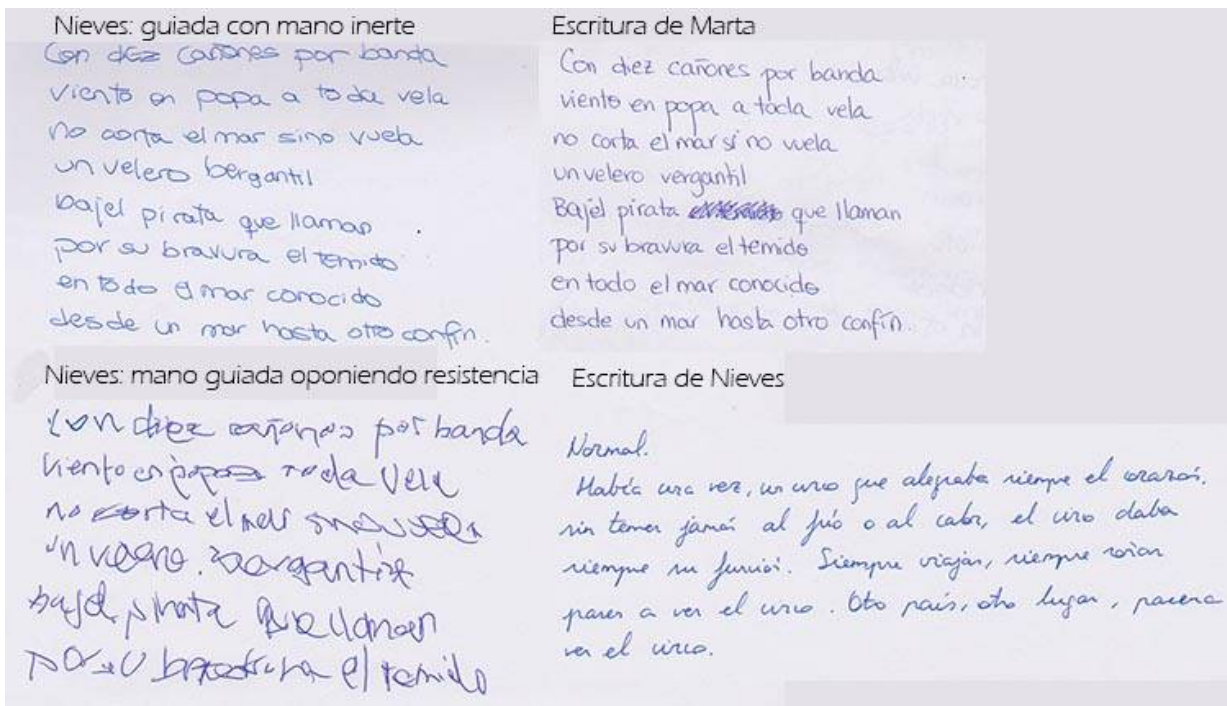 Nieves: guiada con mano inerte
Con diez cañones por banda
viento en popa a toda vela
no corta el mar sino vuela
un velero bergantil
bajel pirata que llaman
por su bravura el temido
en todo el mar conocido
desde un mar hasta otro confín.
Escritura de Marta
Con diez cañones por banda
viento en popa a toda vela
no corta el mar si no vuela
un velero vergantil
Bajel pirata que llaman
por su bravura el temido
en todo el mar conocido
desde un mar hasta otro confín.
Nieves: mano guiada oponiendo resistencia
Con diez cañones por banda
viento en popa toda vela
no corta el mar
un
bajel pirata que llaman
por su el temido
Escritura de Nieves
Normal.
Había una vez, un circo que alegraba siempre el corazón.
sin temer jamás al frío o al calor, el circo daba
siempre su función. Siempre viajan, siempre
pasen a ver el circo. Otro país, otro lugar, pasen a
ver el circo.